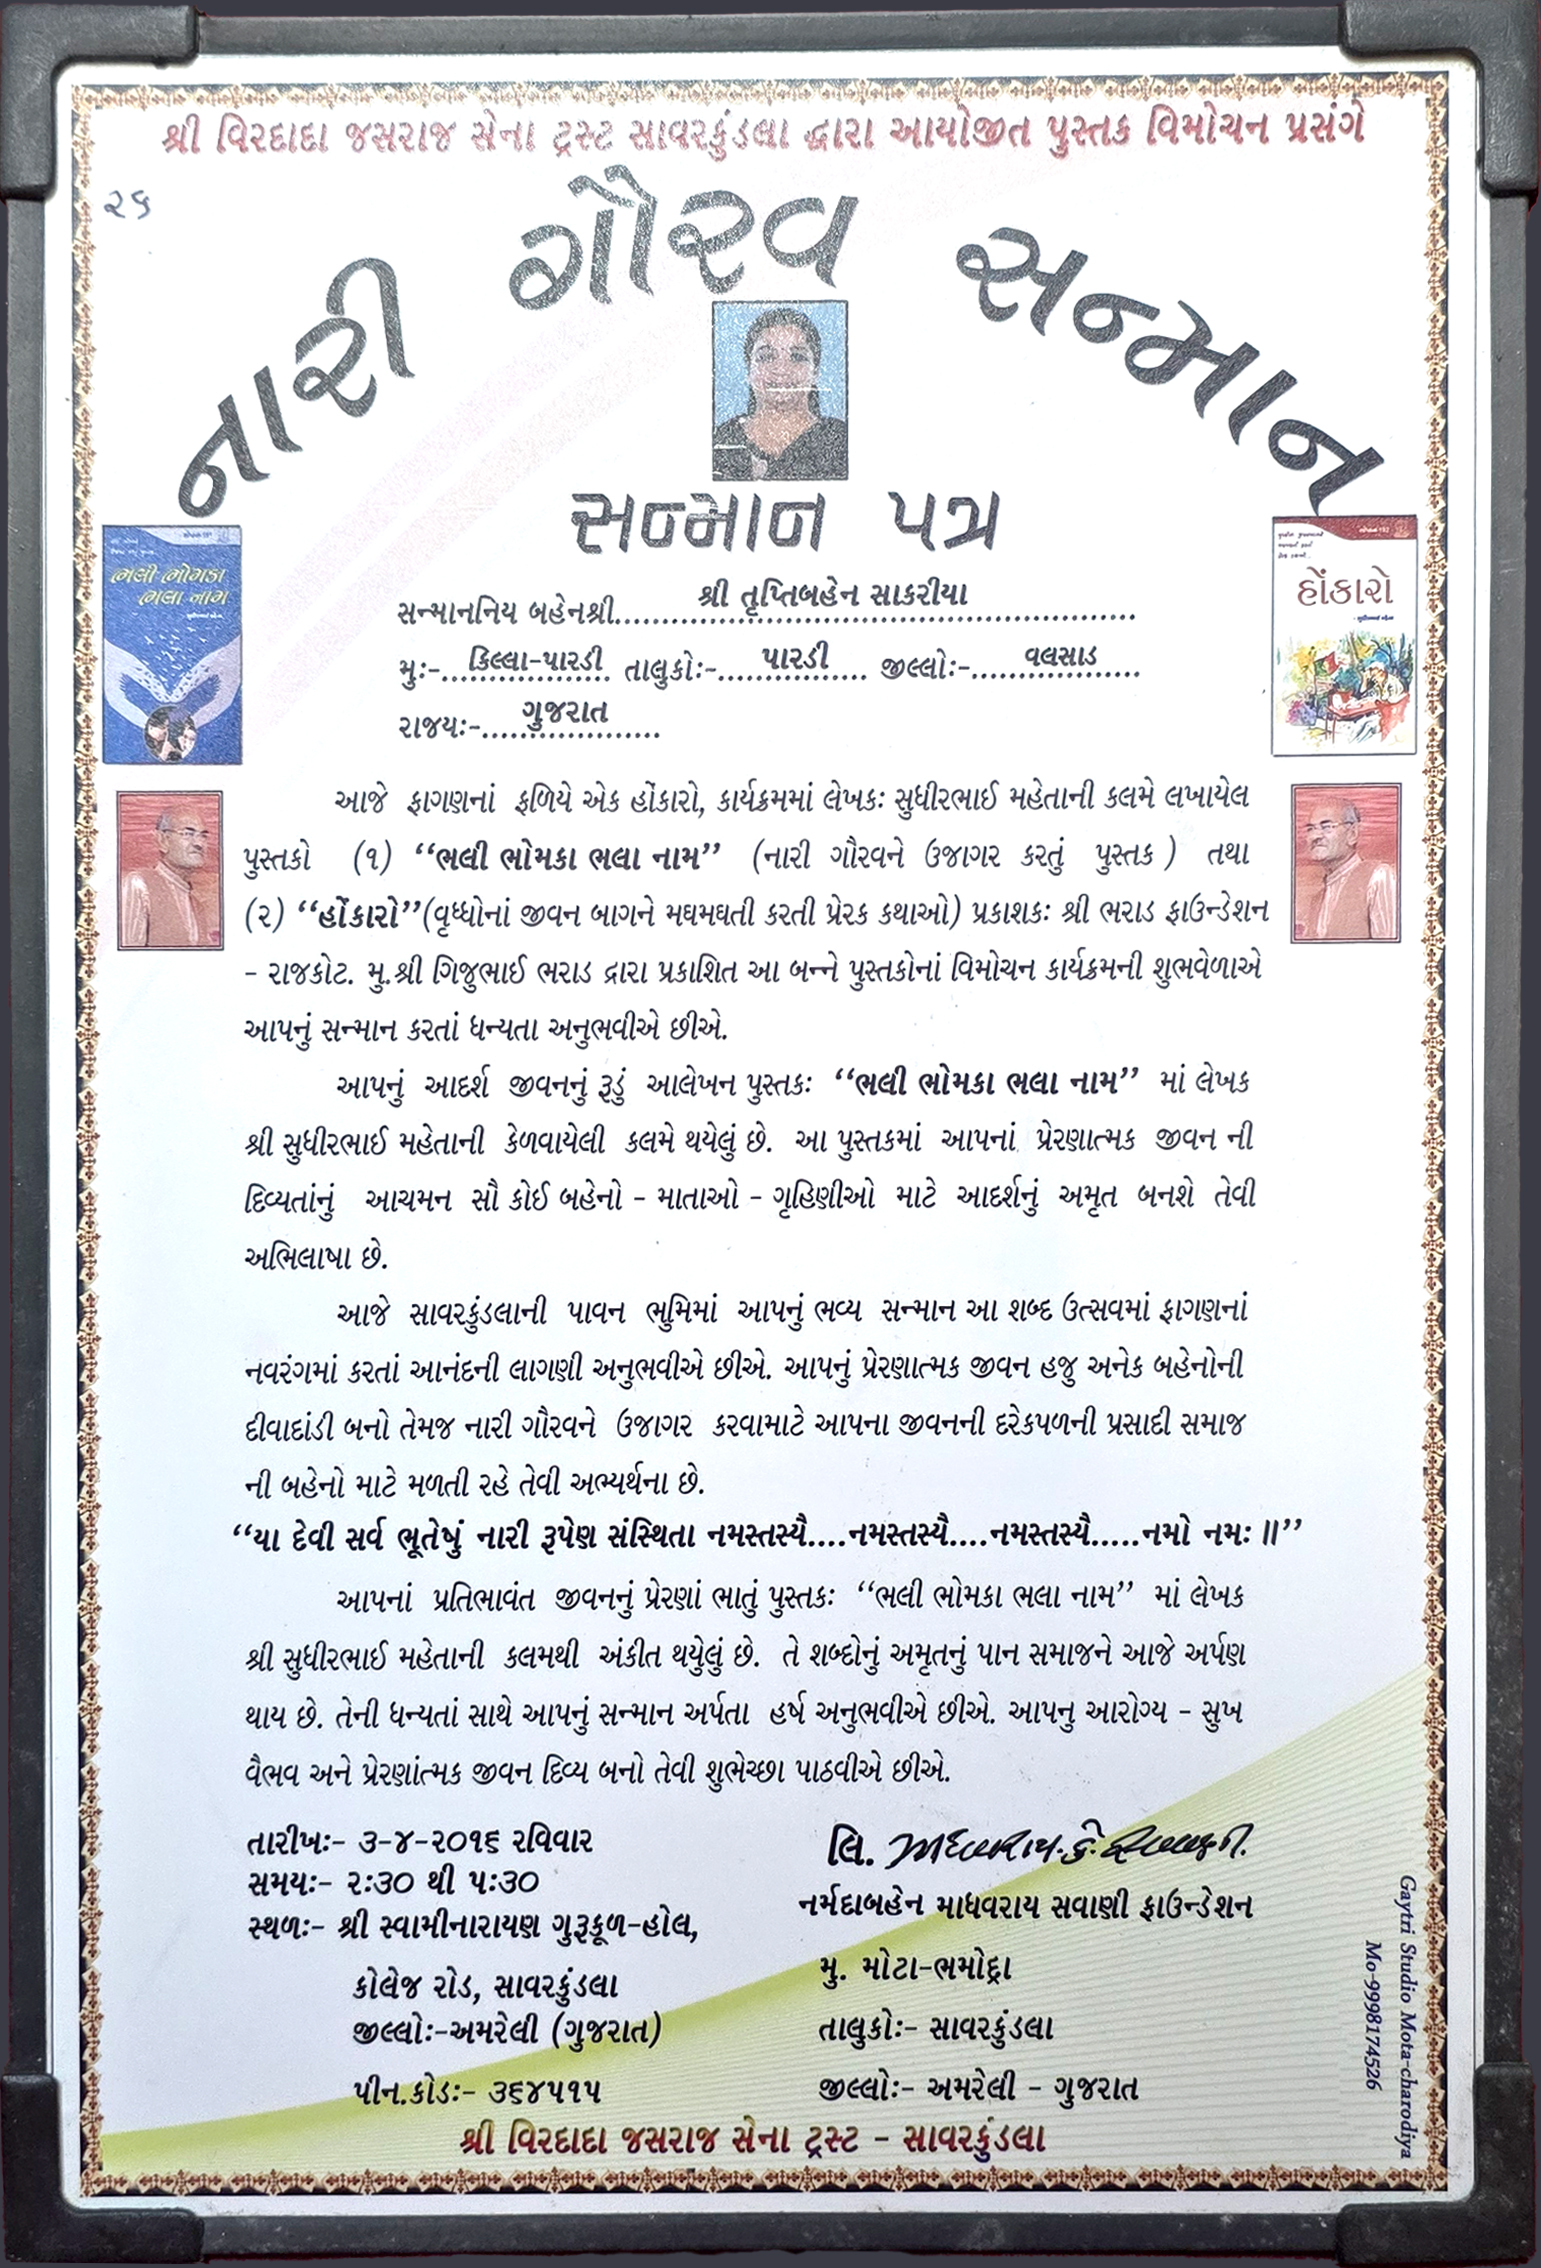 શ્રી વિરદાદા જસરાજ સેના ટ્રસ્ટ સાવરકુંડલા દ્વારા આયોજીત પુસ્તક વિમોચન પ્રસંગે
૨૬
નારી ગૌરવ સન્માન
સન્માન પત્ર
ભલી ભોમકા
ભલા નામ
હોંકારો
સન્માનનિય બહેનશ્રી....શ્રી તૃપ્તિબહેન સાકરીયા....
મુઃ-....કિલ્લા-પારડી.... તાલુકોઃ-....પારડી.... જીલ્લોઃ-....વલસાડ....
રાજયઃ-....ગુજરાત....
આજે ફાગણનાં ફળિયે એક હોંકારો, કાર્યક્રમમાં લેખકઃ સુધીરભાઈ મહેતાની કલમે લખાયેલ
પુસ્તકો (૧) ‘‘ભલી ભોમકા ભલા નામ’’ (નારી ગૌરવને ઉજાગર કરતું પુસ્તક ) તથા
(૨) ‘‘હોંકારો’’(વૃધ્ધોનાં જીવન બાગને મઘમઘતી કરતી પ્રેરક કથાઓ) પ્રકાશકઃ શ્રી ભરાડ ફાઉન્ડેશન
- રાજકોટ. મુ.શ્રી ગિજુભાઈ ભરાડ દ્રારા પ્રકાશિત આ બન્ને પુસ્તકોનાં વિમોચન કાર્યક્રમની શુભવેળાએ
આપનું સન્માન કરતાં ધન્યતા અનુભવીએ છીએ.
આપનું આદર્શ જીવનનું રૂડું આલેખન પુસ્તકઃ ‘‘ભલી ભોમકા ભલા નામ’’ માં લેખક
શ્રી સુધીરભાઈ મહેતાની કેળવાયેલી કલમે થયેલું છે. આ પુસ્તકમાં આપનાં પ્રેરણાત્મક જીવન ની
દિવ્યતાંનું આચમન સૌ કોઈ બહેનો - માતાઓ - ગૃહિણીઓ માટે આદર્શનું અમૃત બનશે તેવી
અભિલાષા છે.
આજે સાવરકુંડલાની પાવન ભુમિમાં આપનું ભવ્ય સન્માન આ શબ્દ ઉત્સવમાં ફાગણનાં
નવરંગમાં કરતાં આનંદની લાગણી અનુભવીએ છીએ. આપનું પ્રેરણાત્મક જીવન હજુ અનેક બહેનોની
દીવાદાંડી બનો તેમજ નારી ગૌરવને ઉજાગર કરવામાટે આપના જીવનની દરેકપળની પ્રસાદી સમાજ
ની બહેનો માટે મળતી રહે તેવી અભ્યર્થના છે.
‘‘યા દેવી સર્વ ભૂતેષું નારી રૂપેણ સંસ્થિતા નમસ્તસ્યૈ....નમસ્તસ્યૈ....નમસ્તસ્યૈ.....નમો નમઃ ।।’’
આપનાં પ્રતિભાવંત જીવનનું પ્રેરણાં ભાતું પુસ્તકઃ ‘‘ભલી ભોમકા ભલા નામ’’ માં લેખક
શ્રી સુધીરભાઈ મહેતાની કલમથી અંકીત થયુેલું છે. તે શબ્દોનું અમૃતનું પાન સમાજને આજે અર્પણ
થાય છે. તેની ધન્યતાં સાથે આપનું સન્માન અર્પતા હર્ષ અનુભવીએ છીએ. આપનુ આરોગ્ય - સુખ
વૈભવ અને પ્રેરણાંત્મક જીવન દિવ્ય બનો તેવી શુભેચ્છા પાઠવીએ છીએ.
તારીખઃ- ૩-૪-૨૦૧૬ રવિવાર
સમયઃ- ૨ઃ૩૦ થી ૫ઃ૩૦
સ્થળઃ- શ્રી સ્વામીનારાયણ ગુરૂકૂળ-હોલ,
કોલેજ રોડ, સાવરકુંડલા
જીલ્લોઃ-અમરેલી (ગુજરાત)
પીન.કોડઃ- ૩૬૪૫૧૫
લિ.
નર્મદાબહેન માધવરાય સવાણી ફાઉન્ડેશન
મુ. મોટા-ભમોદ્રા
તાલુકોઃ- સાવરકુંડલા
જીલ્લોઃ- અમરેલી - ગુજરાત
શ્રી વિરદાદા જસરાજ સેના ટ્રસ્ટ - સાવરકુંડલા
Gaytri Studio Mota-charodiya
Mo-9998174526